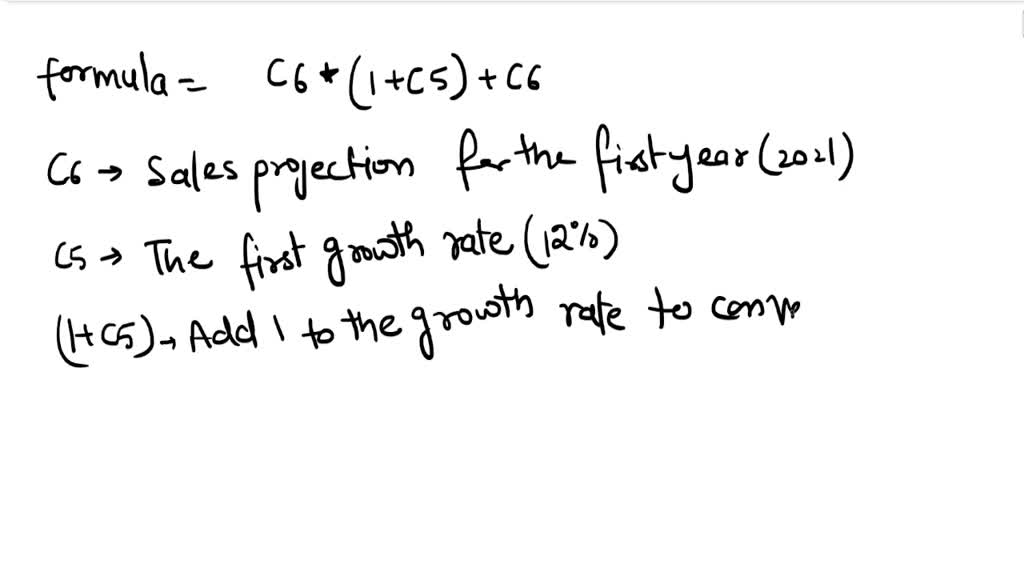 formula = C6 * (1+C5) + C6
C6 → Sales projection for the first year (2021)
C5 → The first growth rate (12%)
(1+C5) → Add 1 to the growth rate to conv